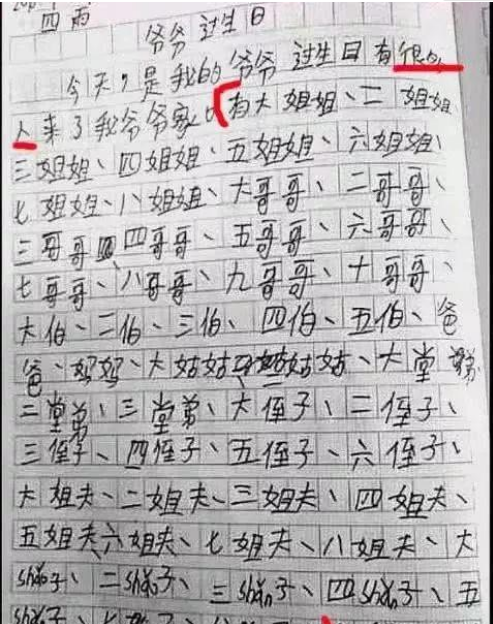 四 雨
爷爷过生日
今天，是我的爷爷过生日有很多
人来了我爷爷家。有大姐姐、二姐姐
三姐姐、四姐姐、五姐姐、六姐姐、
七姐姐、八姐姐、大哥哥、二哥哥、
三哥哥四哥哥、五哥哥、六哥哥、
七哥哥、八哥哥、九哥哥、十哥哥、
大伯、二伯、三伯、四伯、五伯、爸
爸、妈妈、大姑姑、姑姑、大堂弟
二堂弟、三堂弟、大侄子、二侄子、
三侄子、四侄子、五侄子、六侄子、
大姐夫、二姐夫、三姐夫、四姐夫、
五姐夫六姐夫、七姐夫、八姐夫、大
sháo子、二sháo子、三sháo子、四sháo子、五